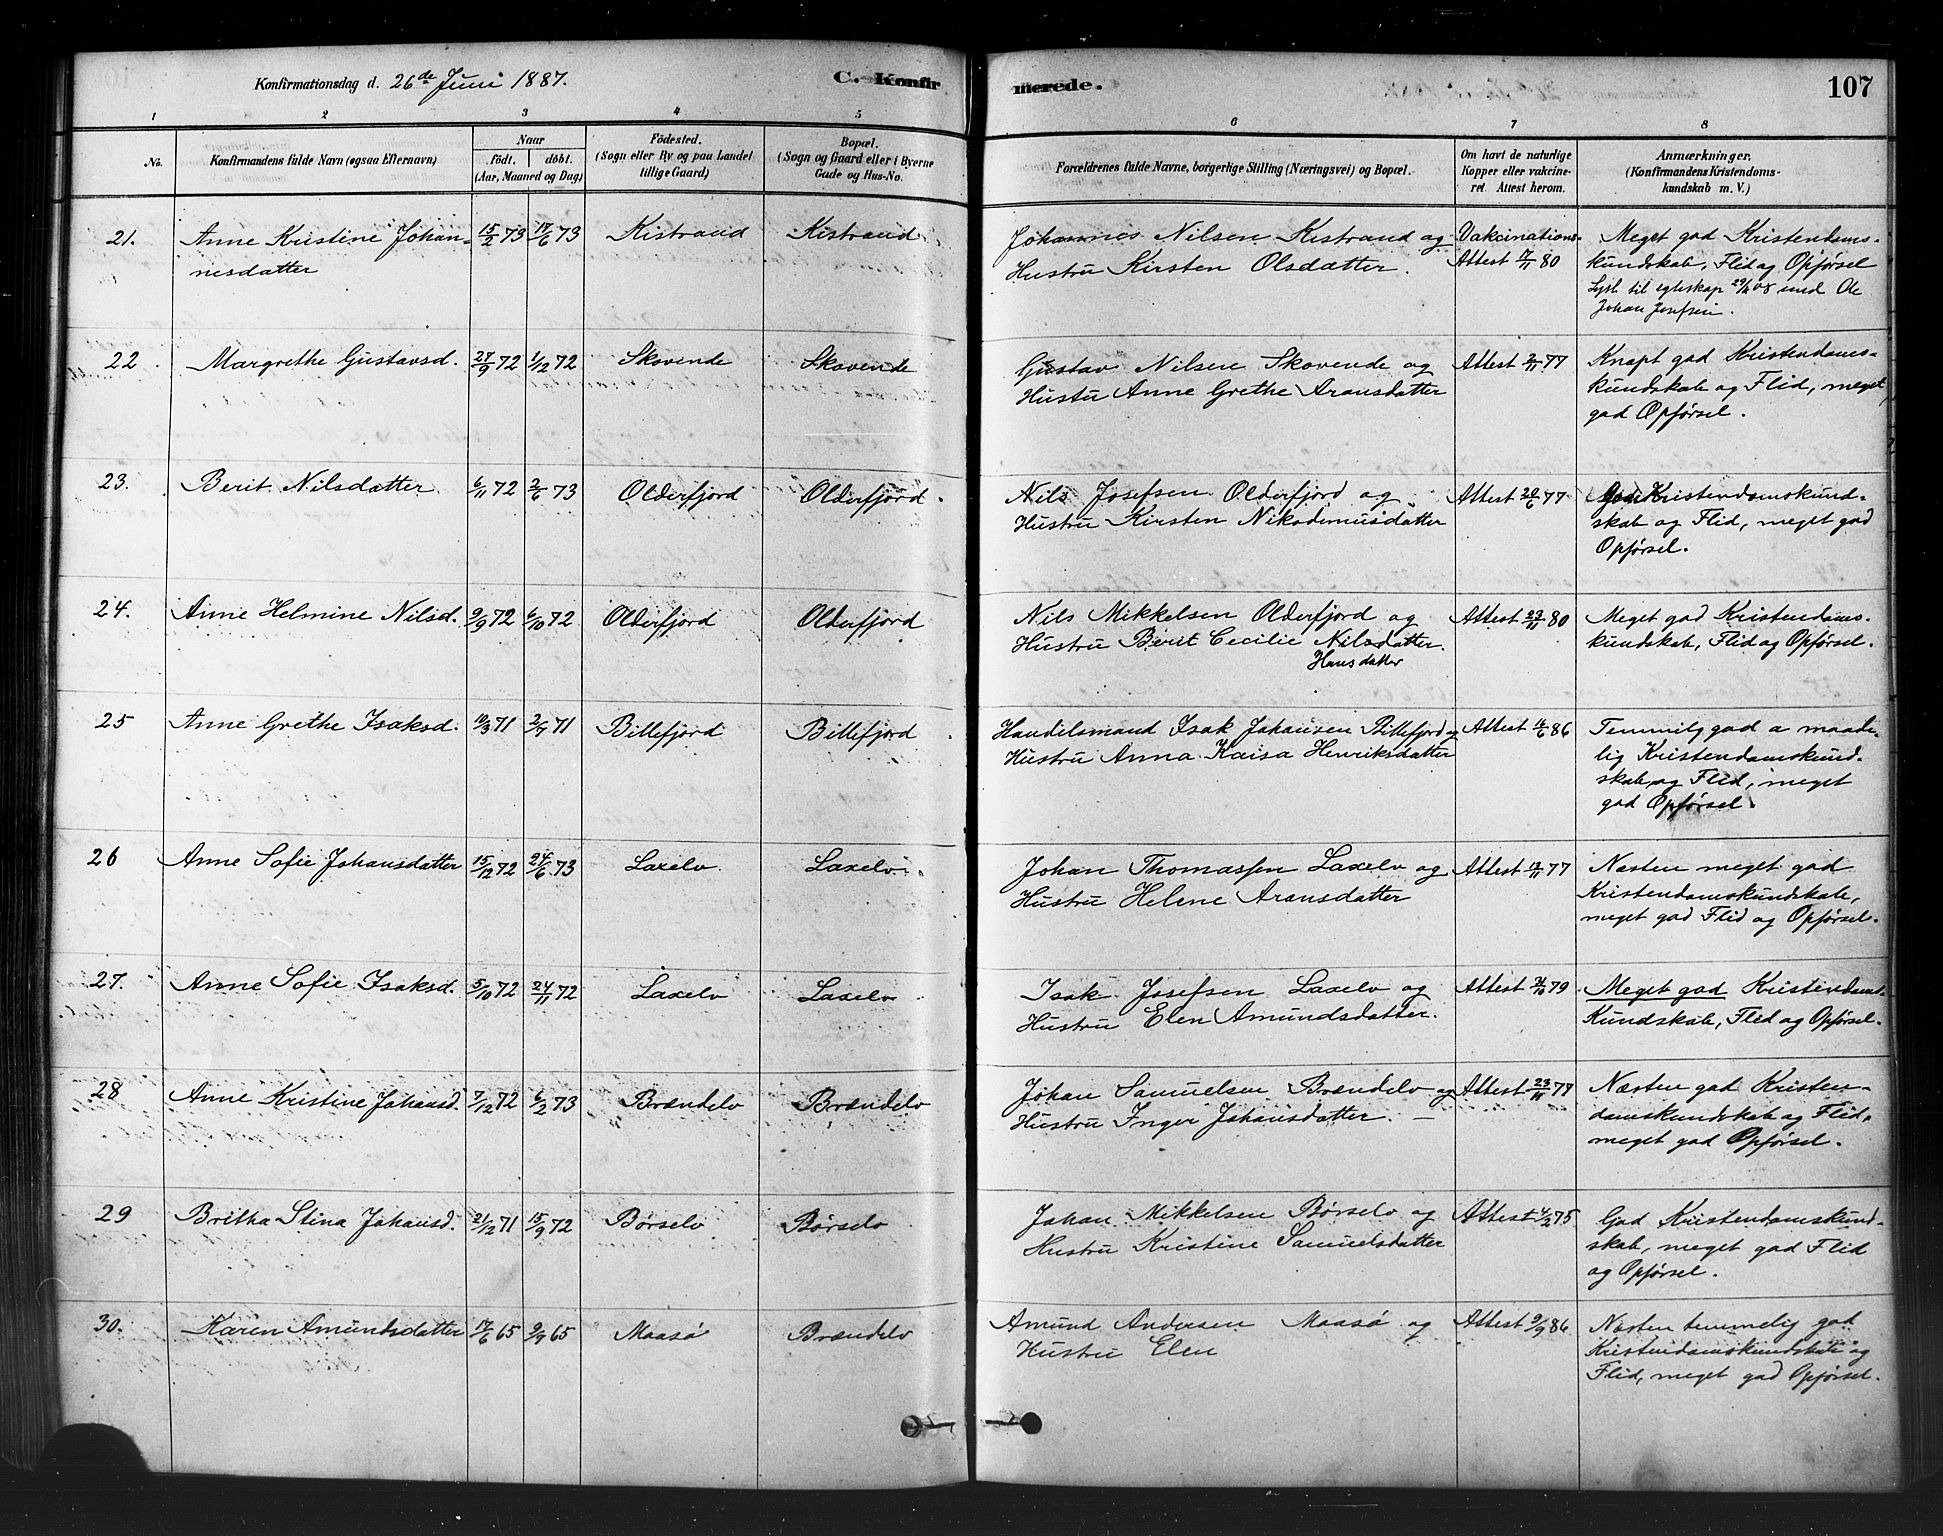 Konfirmationsdag d. 26de Juni 1887.
C. Konfir
merede.
107
1 2 3 4 5 6 7 8
No.
Konfirmandens fulde Navn (ogsaa Efternavn)
Naar
födt. döbt.
(Aar, Maaned og Dag)
Födested.
(Sogn eller By og paa Landet
tillige Gaard)
Bopæl.
(Sogn og Gaard eller i Byerne
Gade og Hus-No.
Forældrenes fulde Navne, borgerlige Stilling (Næringsvei) og Bopæl.
Om havt de naturlige
Kopper eller vakcine-
ret. Attest herom.
Anmærkninger.
(Konfirmandens Kristendoms-
kundskab m. V.)
21. Anne Kristine Johan- 15/2 73 17/6 73 Kistrand Kistrand Johannes Nilsen Kistrand og Vakcinations- Meget god Kristendoms-
nesdatter Hustru Kirsten Olsdatter. Attest 17/11 80 kundskab, Flid og Opførsel
Lyst til egteskap 29/11 08 med Ole
Johan Josefsen.
22 Margrethe Gustavsd. 27/9 72 1/12 72 Skovende Skovende Gustav Nilsen Skovende og Attest 2/11 77 Knapt god Kristendoms-
Hustu Anne Grethe Aronsdatter kundskab og Flid, meget
god Opførsel.
23. Berit Nilsdatter 6/11 72 2/6 73 Olderfjord Olderfjord. Nils Josefsen Olderfjord og Attest 20/6 77 God Kristendomskund-
Hustru Kirsten Nikodemusdatter skab og Flid, meget god
Opførsel.
24. Anne Helmine Nilsd. 9/9 72 6/10 72 Olderfjord Olderfjord Nils Mikkelsen Olderfjord og Attest 23/11 80 Meget god Kristendoms-
Hustru Berit Cecilie Nilsdatter. kundskab, Flid og Opførsel.
Hansdatter
25 Anne Grethe Isaksd. 10/3 71 2/7 71 Billefjord Billefjord Handelsmand Isak Johansen Billefjord og Attest 16/6 86 Temmelig god a maade-
Hustru Anna Kaisa Henriksdatter lig Kristendomskund-
skab og Flid, meget
god Opførsel.
26 Anne Sofie Johansdatter 15/12 72 24/6 73 Laxelv Laxelv. Johan Thomassen Laxelv og Attest 12/11 77 Næsten meget god
Hustru Helene Aronsdatter Kristendomskundskab,
meget god Flid og Opførsel.
27. Anne Sofie Isaksd. 5/10 72 24/11 72 Laxelv Laxelv Isak Josefsen Laxelv og Attest 21/10 79 Meget god Kristendoms-
Hustru Elen Amundsdatter. Kundskab, Flid og Opførsel.
28 Anne Kristine Johansd. 7/12 72 6/2 73 Brændelv Brændelv Johan Samuelsen Brændelv og Attest 23/11 77 Næsten god Kristen-
Hustru Inger Johansdatter. domskundskab og Flid,
meget god Opførsel.
29 Britha Stina Johansd. 21/12 71 15/9 72 Børselv Børselv Johan Mikkelsen Børselv og Attest 4/2 75 God Kristendomskund-
Hustru Kristine Samuelsdatter skab, meget god Flid
og Opførsel.
30. Karen Amundsdatter 17/6 65 9/9 65 Maasø Brændelv Amund Andersen Maasø og Attest 9/9 86 Næsten temmelig god
Hustru Elen Kristendomskundskab og
Flid, meget god Opførsel.